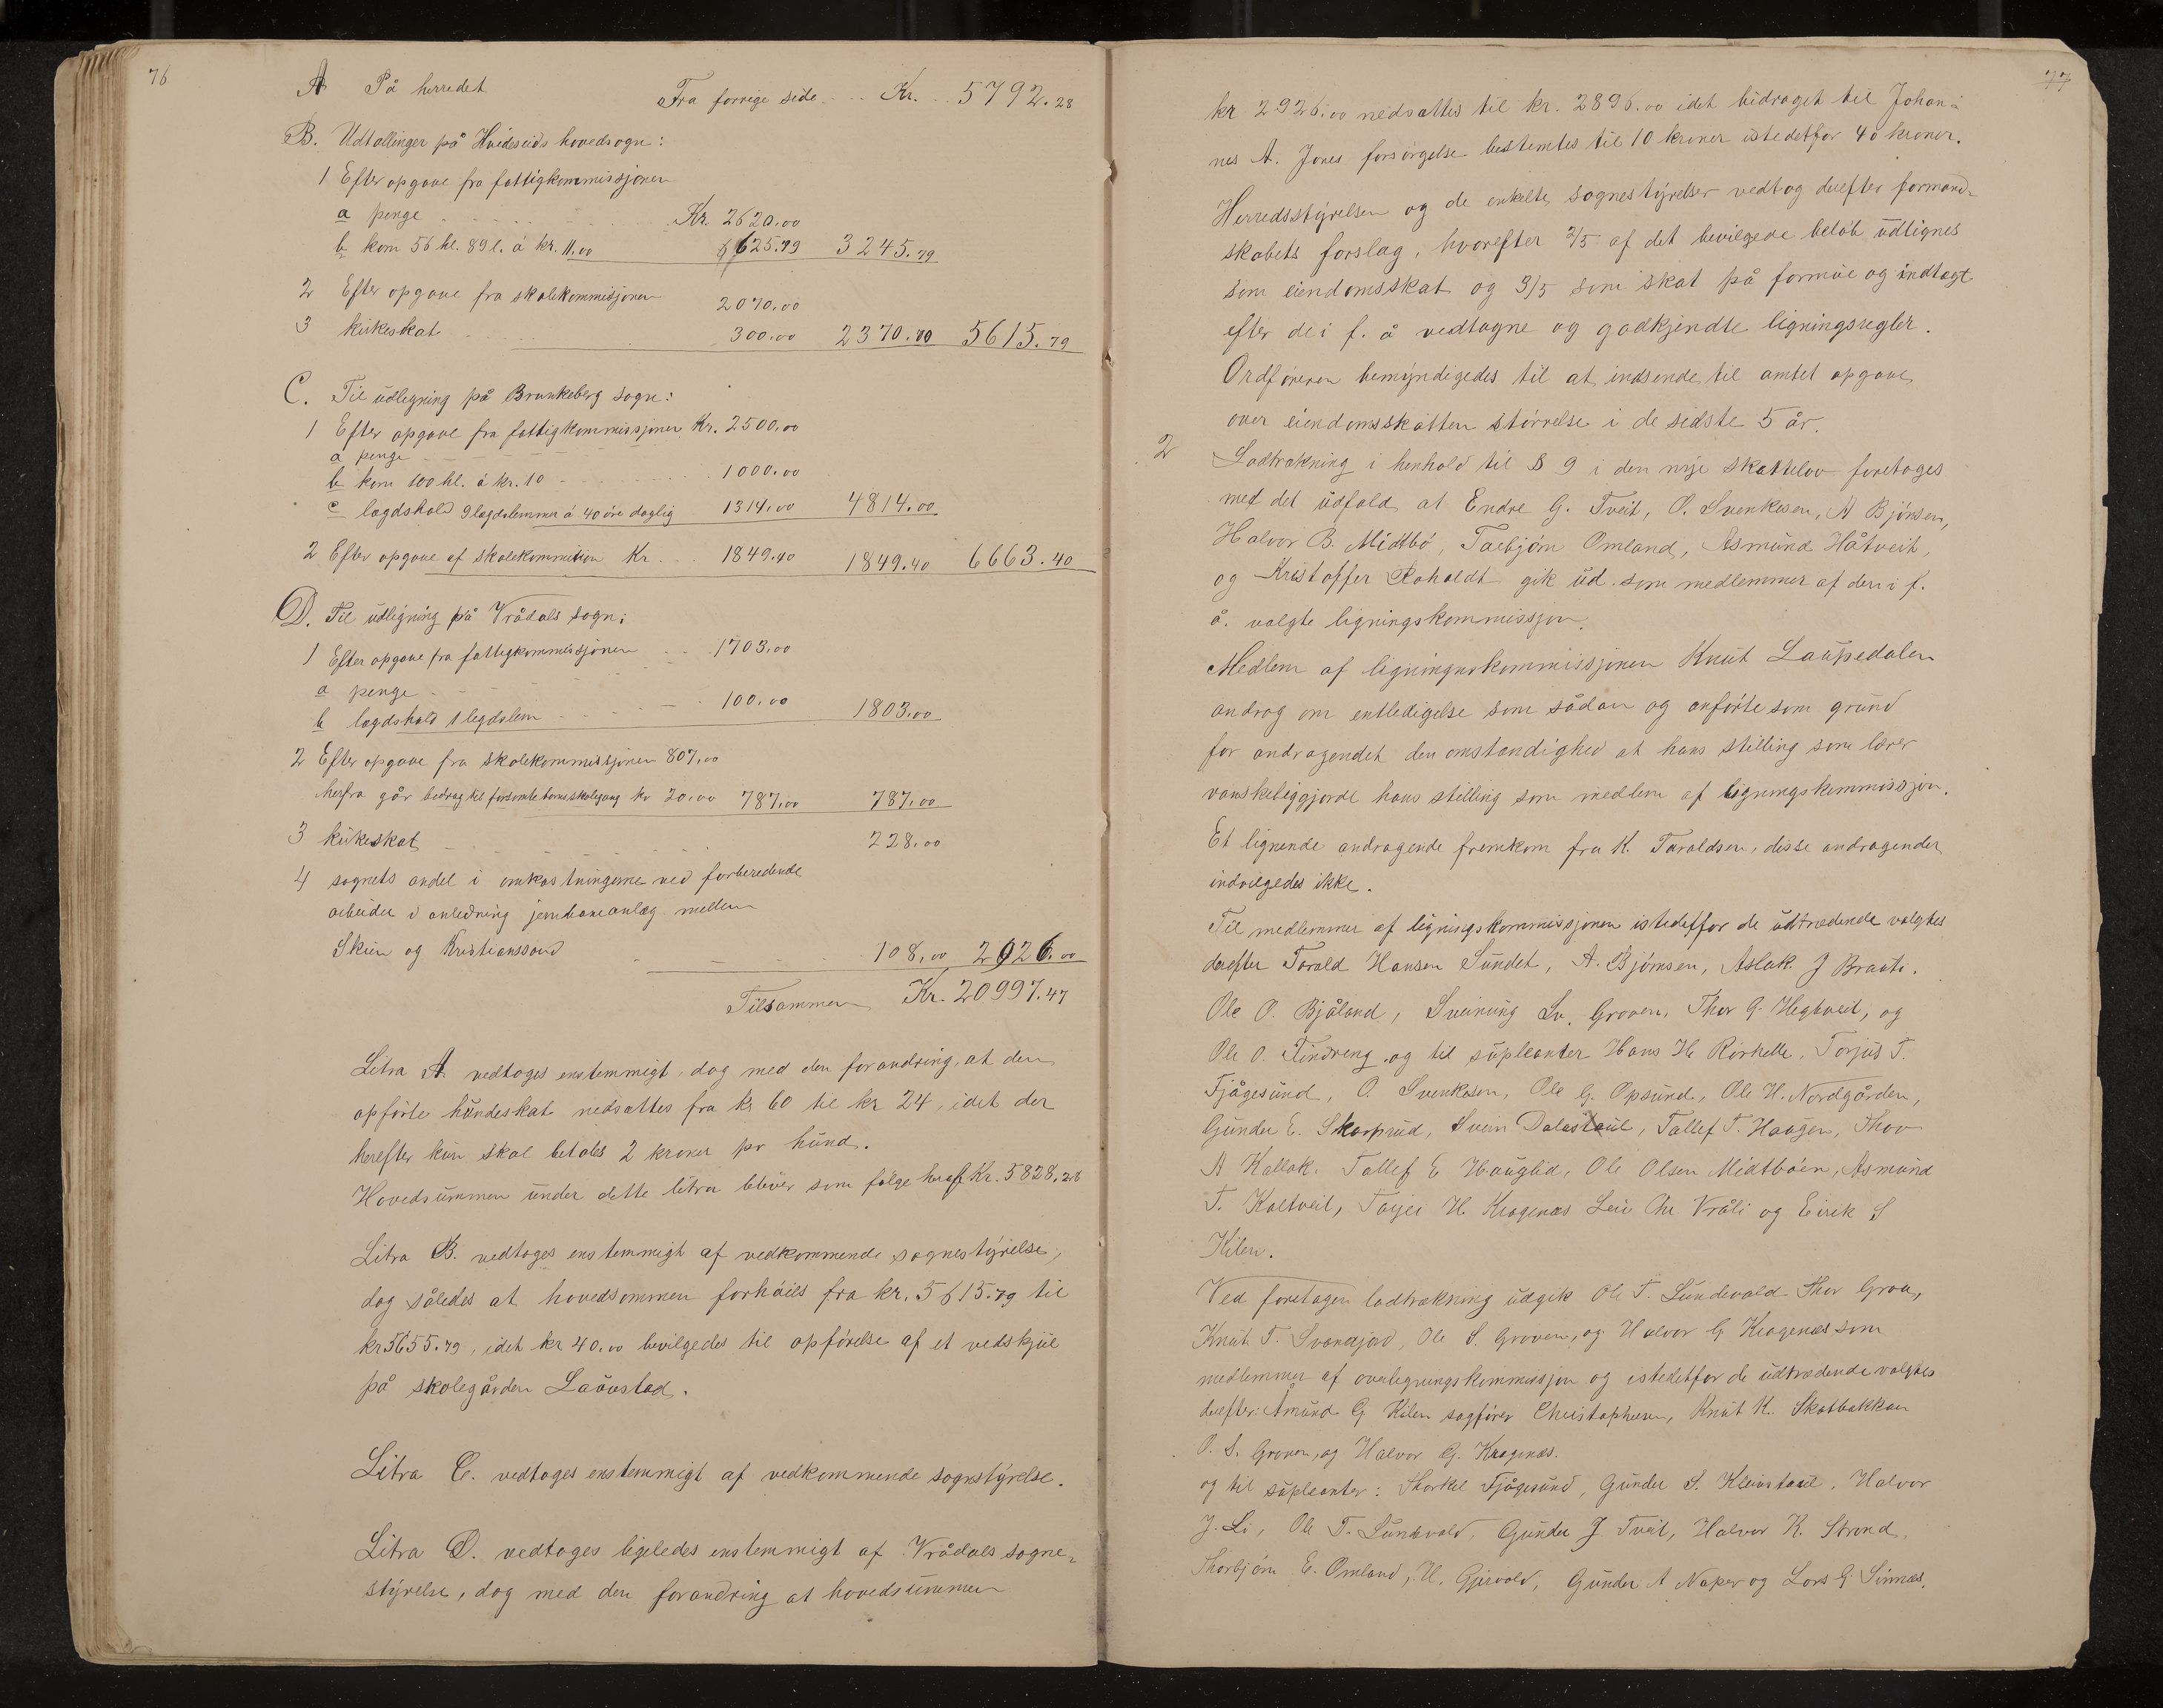 76
A På herredet Fra forrige side Kr. 5792.28
B. Udtællinger på Hvideseids hovedsogn:
1 Efter opgave fra fattigkommissjonen
a penge Kr. 2620.00
b korn 56 hl. 89 l. á kr. 11.00 625.79 3245.79
2 Efter opgave fra skolekommissjonen 2070.00
3 kirkeskat 300.00 2370.00 5615.79
C. Til udligning på Brunkeberg sogn:
1 Efter opgave fra fattigkommissjonen Kr. 2500.00
a penge
b korn 100 hl. á kr. 10 1000.00
c lægdshold 9 lægdslemmer á 40 öre daglig 1314.00 4814.00
2 Efter opgave af skolekommission Kr. 1849.40 1849.40 6663.40
D. Til udligning på Vrådals sogn:
1 Efter opgave fra fattigkommissjonen 1703.00
a penge
b lægdshold 1 legdslem 100.00 1803.00
2 Efter opgave fra skolekommissjonen 807.00
herfra går bidrag til forsømte børns skolegang kr 20.00 787.00 787.00
3 kirkeskat 228.00
4 sognets andel i omkostningerne ved forberedende
arbeider i anledning jernbaneanlæg mellem
Skien og Kristianssand 108.00 2926.00
Tilsammen Kr. 20997.47
Litra A. vedtoges enstemmigt, dog med den forandring, at den
opførte hundeskat nedsattes fra kr 60 til kr 24, idet der
herefter kun skal betales 2 kroner pr hund.
Hovedsummen under dette litra bliver som følge heraf Kr. 5828.28
Litra B. vedtoges enstemmigt af vedkommende sognestyrelse,
dog således at hovedsommen forhöies fra kr. 5615.79 til
kr 5655.79, idet kr 40.00 bevilgedes til opførelse af et vedskjul
på skolegården Lauvstad.
Litra C. vedtoges enstemmigt af vedkommende sognstyrelse.
Litra D. vedtoges ligeledes enstemmigt af Vrådals sogne-
styrelse, dog med den forandring at hovedsummen
77
kr 2926.00 nedsattes til kr. 2896.00 idet bidraget til Johan-
nes A. Jores forsørgelse bestemtes til 10 kroner istedetfor 40 kroner.
Herredsstyrelsen og de enkelte sognestyrelser vedtog derefter formand-
skabets forslag, hvorefter 2/5 af det bevilgede beløb udlignes
som eiendomsskat og 3/5 som skat på formue og indtægt
efter de i f. å vedtagne og godkjendte ligningsregler.
Ordføreren bemyndigedes til at indsende til amtet opgave
over eiendomsskatten størrelse i de sidste 5 år.
2 Lodtrækning i henhold til § 9 i den nye skattelov foretoges
med det udfald at Endre G. Tveit, O. Svenkesen, A Bjönsen,
Halvor B. Midtbö, Torbjörn Omland, Asmund Håtveit,
og Kristoffer Roholdt gik ud som medlemmer af den i f.
å. valgte ligningskommissjon.
Medlem af ligningnskommissjonen Knut Laupedalen
androg om entledigelse som sådan og anførte som grund
for andragendet den omstændighed at hans stilling som lærer
vanskeliggjorde hans stilling som medlem af ligningskommissjon.
Et lignende andragende fremkom fra K. Taraldsen, desse andragender
indvilgedes ikke.
Til medlemmer af ligningskommissjonen istedetfor de udtrædende valgtes
derefter Torald Hansen Sundet, A. Bjönsen, Aslak J Brauti.
Ole O. Bjåland, Sveinung Sv. Groven, Thor G. Hegtveit, og
Ole O. Tindreng og til supleanter Hans H. Rörhelle, Torjus T.
Fjågesund, O. Svenkesen, Ole G. Opsund, Ole H. Nordgården,
Gunder E. Skarprud, Svein Dalastaul, Tallef T. Haugen, Thor
A Kallak. Tallef E Hauglid, Ole Olsen Midtböen, Asmund
T. Kaltveit, Tarjei H. Kragenæs Leiv Chr Vråli og Eirik S
Kilen.
Ved foretagen lodtrækning udgik Ole T. Lundevald Thor Groa,
Knut T. Svandjord, Ole S. Groven, og Halvor G Kragenæs som
medlemmer af overligningskommissjon og istedetfor de udtrædende valgtes
derefter: Åmund G Kilen sagfører Christophersen, Knut K. Skatbakkan
O. S. Groven, og Halvor G. Kragenæs.
og til supleanter: Thorkel Fjågesund, Gunder S. Kleivstaul, Halvor
J. Li, Ole T. Lundevald, Gunder J Tveit, Halvor K. Strond,
Thorbjörn E. Omland, H. Gjervald, Gunder A Naper og Lars G Sinnes.